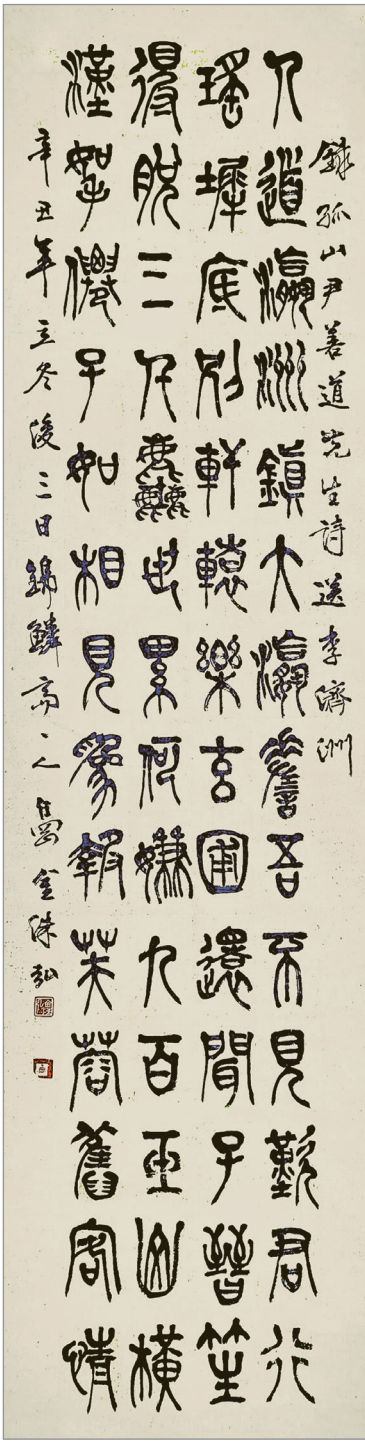 錄孤山尹善道先生詩送李濟洲
人道瀛洲鎮大瀛嗟吾不見歎君行
瑤墀底別軒轅樂玄圃還聞子晉笙
得脫三千塵世累何嫌九百山橫
漢拏僊子如相見爲報芙蓉舊客情
辛丑年立冬後三日錦鱗齋主人金洙弘